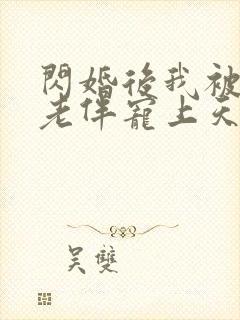 閃婚後我被
老伴寵上天
吳雙